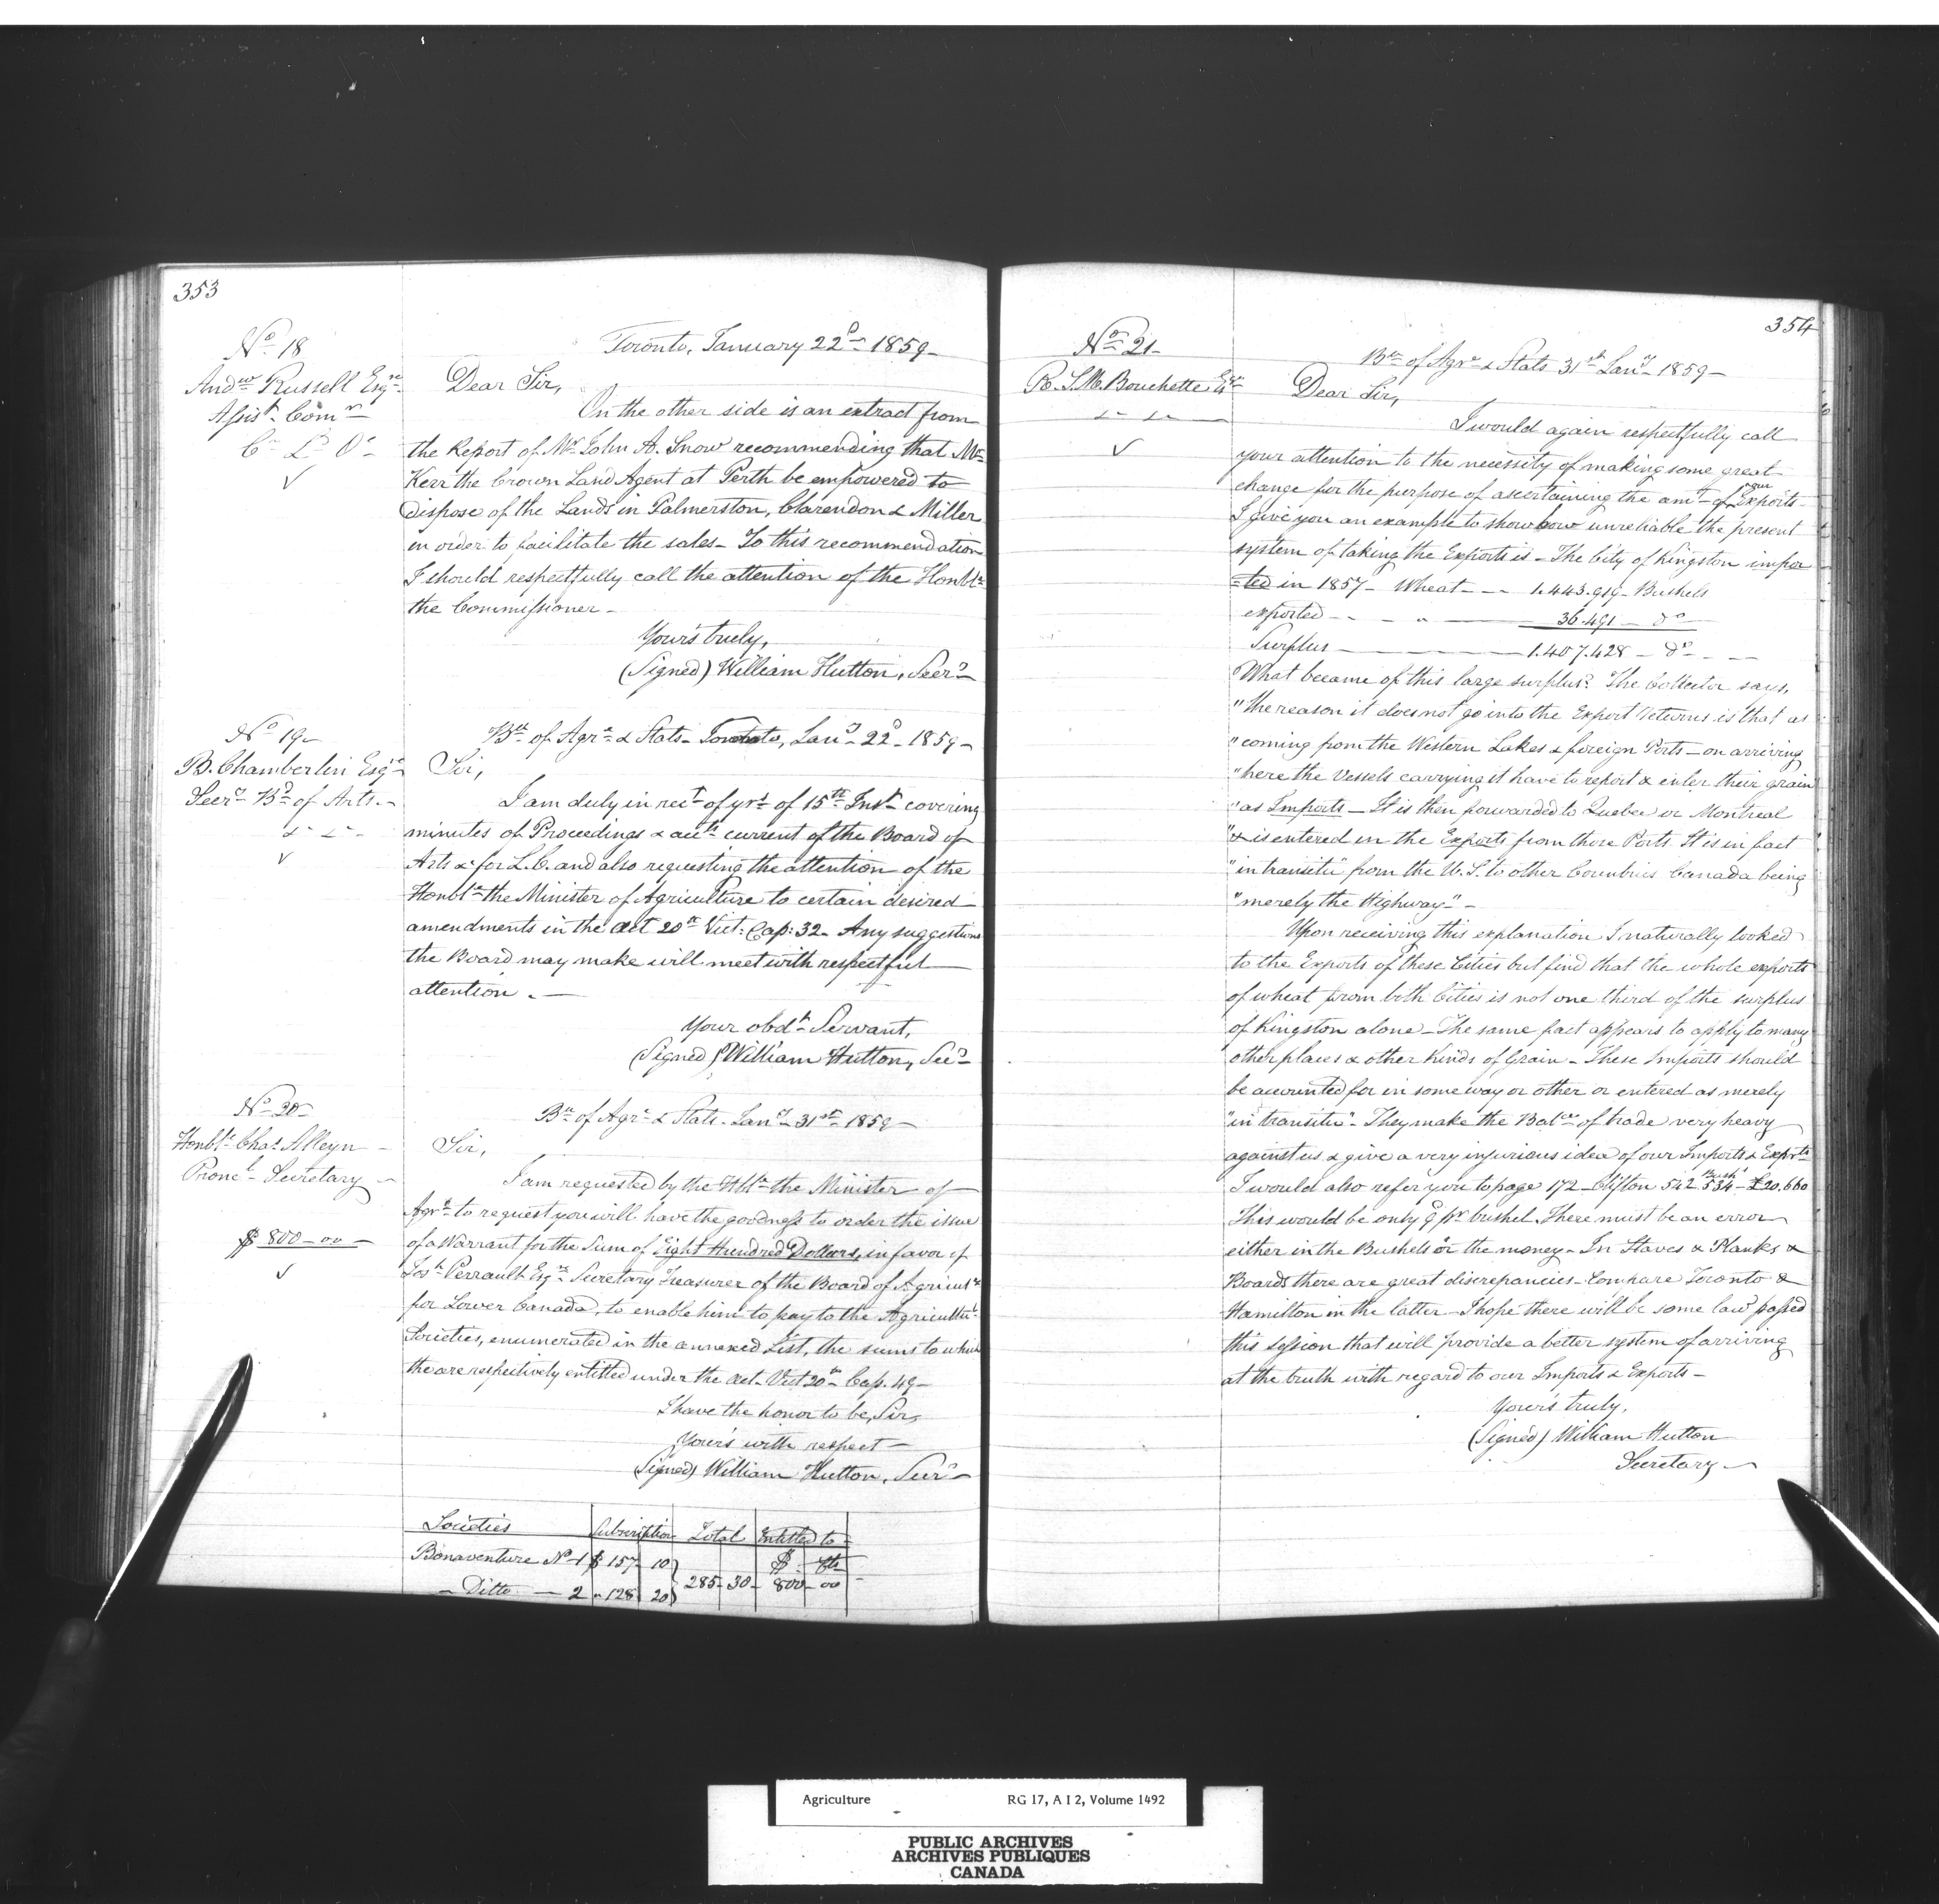 353
No 18
Andw Russell Esqre
Assist. Comr
C. L. D.
Toronto, January 22d 1859
Dear Sir,
On the other side is an extract from
the Report of Mr John A. Snow recommending that Mr
Kerr the Crown Land Agent at Perth be empowered to
dispose of the Lands in Palmerston, Clarendon & Miller
in order to facilitate the sales - To this recommendation
I should respectfully call the attention of the Honble
the Commissioner -
Your's truly,
(Signed) William Hutton, Secry
No 19
B. Chamberlin Esqre
Secry Bd of Arts
&c &c
Bu of Agre & Stats - Toronto, Jany 22d 1859
Sir,
I am duly in rect of yrs of 15th Inst. covering
minutes of Proceedings & acct current of the Board of
Arts &c for L.C. and also requesting the attention of the
Honble the Minister of Agriculture to certain desired
amendments in the Act 20th Vict: Cap: 32 - Any suggestions
the Board may make will meet with respectful
attention. -
Your obdt Servant,
(Signed) William Hutton, Secy
No 20
Honble Chas Alleyn
Provcl Secretary
$800-00
Bu of Agre & Stats - Jany 31st 1859
Sir,
I am requested by the Hble the Minister of
Agre to request you will have the goodness to order the issue
of a Warrant for the Sum of Eight Hundred Dollars, in favor of
Josh Perrault Esqre Secretary Treasurer of the Board of Agricultre
for Lower Canada, to enable him to pay to the Agricultl
Societies, enumerated in the annexed List, the sums to which
the are respectively entitled under the Act - Vict 20th Cap. 49 -
I have the honor to be, Sir,
Your's with respect -
(Signed) William Hutton, Secry
Societies Subscription Total Entitled to
Bonaventure No 1 $157 10 $ cts
Ditto - 2 " 128 20 285-30 800-00
354
No 21
R. S. M. Bouchette Esqr
&c &c
Bu of Agre & Stats 31st Jany 1859
Dear Sir,
I would again respectfully call
your attention to the necessity of making some great
change for the purpose of ascertaining the amt of our Exports -
I give you an example to show how unreliable the present
system of taking the Exports is - The City of Kingston impor
-ted in 1857 - Wheat - - 1.443.919 - Bushels
exported - - " - 36.491 - do
Surplus - 1.407.428 - do
What became of this large surplus? The Collector says,
"the reason it does not go into the Export returns is that as
"coming from the Western Lakes & foreign Ports - on arriving
"here the vessels carrying it have to report & enter their grain
"as Imports - It is then forwarded to Quebec or Montreal
"& is entered in the Exports from those Ports. It is in fact
"in transitu" from the U.S. to other Countries Canada being
"merely the Highway" -
Upon receiving this explanation I naturally looked
to the Exports of these Cities but find that the whole exports
of wheat from both Cities is not one third of the surplus
of Kingston alone - The same fact appears to apply to many
other places & other Kinds of Grain - These Imports should
be accounted for in some way or other or entered as merely
"in transitu" - They make the Balce of trade very heavy
against us & give a very injurious idea of our Imports & Exports
I would also refer you to page 172 - Clifton 542.534 Bush - £20.660
This would be only 9d pr bushel. There must be an error
either in the Bushels or the money - In Staves & Planks &
Boards there are great discrepancies - Compare Toronto &
Hamilton in the latter - I hope there will be some law passed
this session that will provide a better system of arriving
at the truth with regard to our Imports & Exports -
Your's truly,
(Signed) William Hutton
Secretary
Agriculture RG 17, A I 2, Volume 1492
PUBLIC ARCHIVES
ARCHIVES PUBLIQUES
CANADA